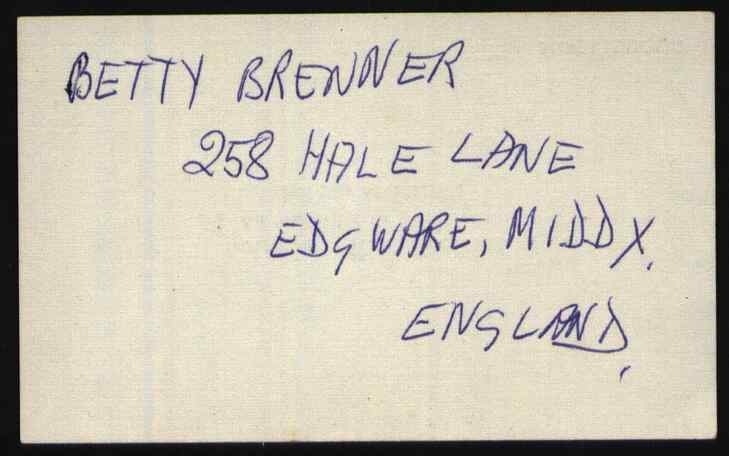 BETTY BRENNER
258 HALE LANE
EDGWARE, MIDDX.
ENGLAND.